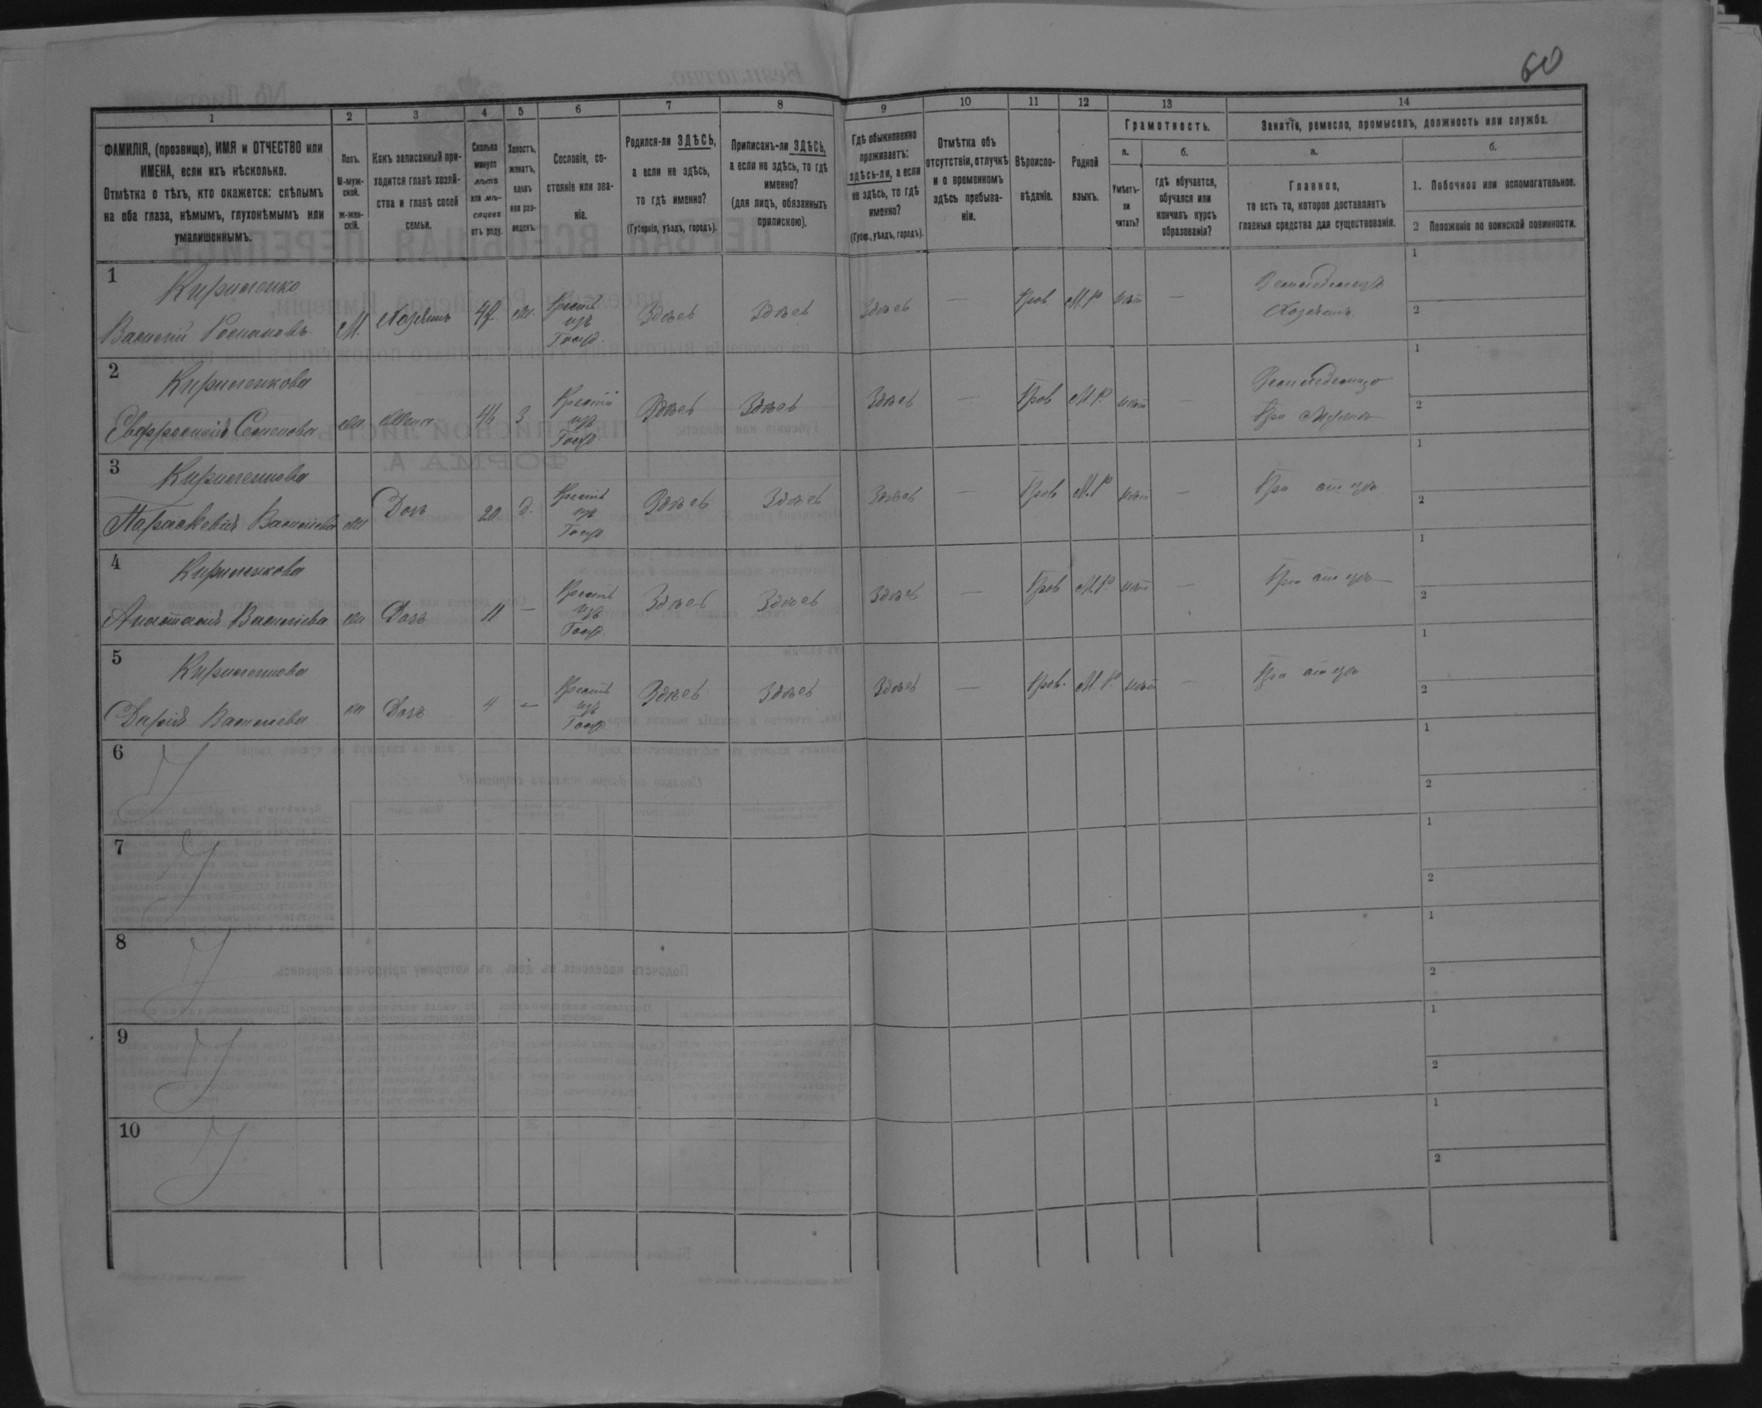 60
1 2 3 4 5 6 7 8 9 10 11 12 13 14
ФАМИЛІЯ, (прозвище), ИМЯ и ОТЧЕСТВО или
ИМЕНА, если ихъ нѣсколько.
Отмѣтка о тѣхъ, кто окажется: слѣпымъ
на оба глаза, нѣмымъ, глухонѣмымъ или
умалишеннымъ.
Полъ.
М-муж-
ской.
ж-жен-
скій.
Какъ записанный при-
ходится главѣ хозяй-
ства и главѣ своей
семьи.
Сколько
минуло
лѣтъ
или мѣ-
сяцевъ
отъ роду.
Холостъ,
женатъ,
вдовъ
или раз-
веденъ.
Сословіе, со-
стояніе или зва-
ніе.
Родился-ли ЗДѢСЬ,
а если не здѣсь,
то гдѣ именно?
(Губернія, уѣздъ, городъ).
Приписанъ-ли ЗДѢСЬ,
а если не здѣсь, то гдѣ
именно?
(для лицъ, обязанныхъ
припискою).
Гдѣ обыкновенно
проживаетъ:
здѣсь-ли, а если
не здѣсь, то гдѣ
именно?
(Губер., уѣздъ, городъ).
Отмѣтка объ
отсутствіи, отлучкѣ
и о временномъ
здѣсь пребыва-
ніи.
Вѣроиспо-
вѣданіе.
Родной
языкъ.
Грамотность.
а.
Умѣетъ-
ли
читать?
б.
гдѣ обучается,
обучался или
кончилъ курсъ
образованія?
Занятіе, ремесло, промыселъ, должность или служба.
а.
Главное,
то есть то, которое доставляетъ
главныя средства для существованія.
б.
1. Побочное или вспомогательное.
2 Положеніе по воинской повинности.
1
Кириченко
Василій Романовъ М. Хозяинъ 47. ж. Крест. изъ Госуд. Здѣсь Здѣсь Здѣсь — Прав М.Р. нѣт —
Земледелецъ
Хозяинъ
1
2
2
Кириченкова
Евфросинія Семенова ж Жена 46 З Крест. изъ Госуд Здѣсь Здѣсь Здѣсь — Прав М.Р. нѣт —
При мужѣ
1
2
3
Кириченкова
Параскевія Василіева ж Дочь 20 д. Крест изъ Госуд Здѣсь Здѣсь Здѣсь — Прав М.Р. нѣт —
При отцѣ
1
2
4
Кириченкова
Анастасія Василіева ж Дочь 11 — Крест изъ Госуд. Здѣсь Здѣсь Здѣсь — Прав М.Р. нѣт —
При отцѣ
1
2
5
Кириченкова
Дарія Василіева ж Дочь 4 — Крест изъ Госуд Здѣсь Здѣсь Здѣсь — Прав. М.Р. нѣт —
При отцѣ
1
2
6
1
2
7
1
2
8
1
2
9
1
2
10
1
2